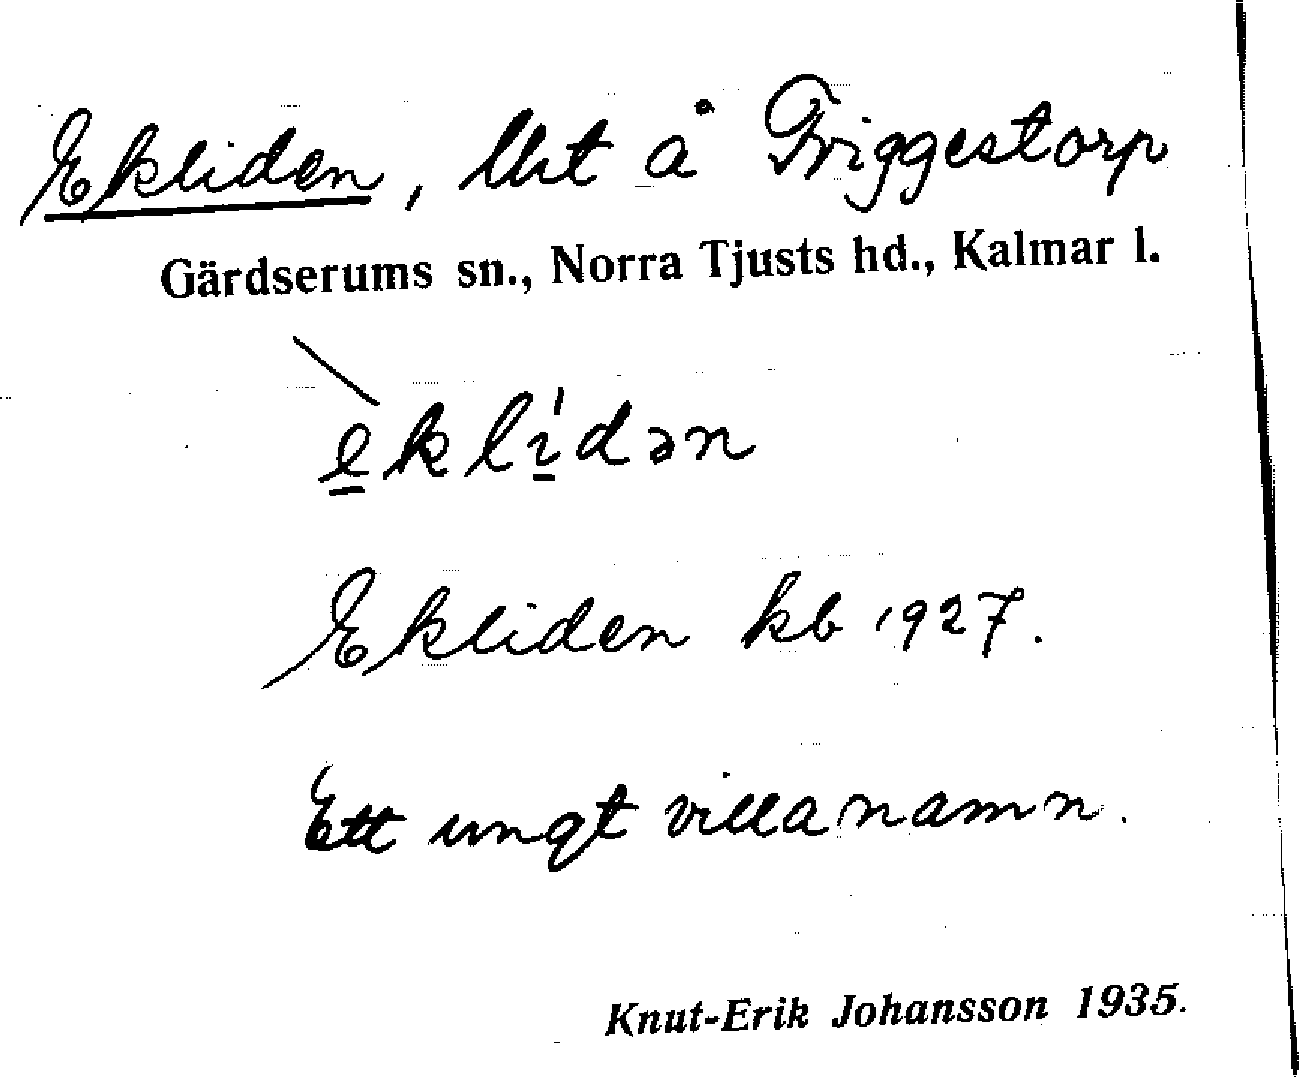 Ekliden, lht å Friggestorp
Gärdserums sn., Norra Tjusts hd., Kalmar l.
`e̲klí̲dən
Ekliden kb 1927.
Ett ungt villanamn.
Knut-Erik Johansson 1935.